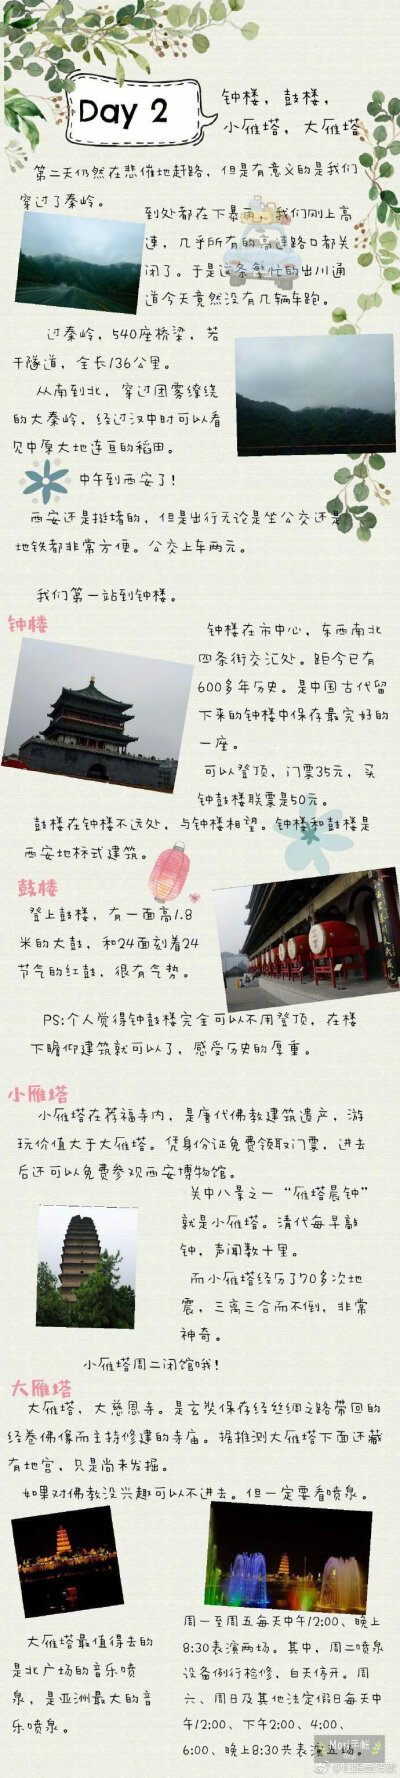 Day 2
钟楼,鼓楼,
小雁塔,大雁塔
第二天仍然在悲催地赶路,但是有意义的是我们
穿过了秦岭。
到处都在下暴雨,我们刚上高
速,几乎所有的高速路口都关
闭了。于是这条繁忙的出川通
道今天竟然没有几辆车跑。
过秦岭,540座桥梁,若
干隧道,全长136公里。
从南到北,穿过团雾缭绕
的大秦岭,经过汉中时可以看
见中原大地连亘的稻田。
中午到西安了!
西安还是挺堵的,但是出行无论是坐公交还是
地铁都非常方便。公交上车两元。
我们第一站到钟楼。
钟楼
钟楼在市中心,东西南北
四条街交汇处。距今已有
600多年历史。是中国古代留
下来的钟楼中保存最完好的
一座。
可以登顶,门票35元,买
钟鼓楼联票是50元。
鼓楼在钟楼不远处,与钟楼相望。钟楼和鼓楼是
西安地标式建筑。
鼓楼
登上鼓楼,有一面高1.8
米的大鼓,和24面刻着24
节气的红鼓,很有气势。
PS:个人觉得钟鼓楼完全可以不用登顶,在楼
下瞻仰建筑就可以了,感受历史的厚重。
小雁塔
小雁塔在荐福寺内,是唐代佛教建筑遗产,游
玩价值大于大雁塔。凭身份证免费领取门票,进去
后还可以免费参观西安博物馆。
关中八景之一“雁塔晨钟”
就是小雁塔。清代每早敲
钟,声闻数十里。
而小雁塔经历了70多次地
震,三离三合而不倒,非常
神奇。
小雁塔周二闭馆哦!
大雁塔
大雁塔,大慈恩寺。是玄奘保存经丝绸之路带回的
经卷佛像而主持修建的寺庙。据推测大雁塔下面还藏
有地宫,只是尚未发掘。
如果对佛教没兴趣可以不进去。但一定要看喷泉。
大雁塔最值得去的
是北广场的音乐喷
泉,是亚洲最大的音
乐喷泉。
周一至周五每天中午12:00、晚上
8:30表演两场。其中,周二喷泉
设备例行检修,白天停开。周
六、周日及其他法定假日每天中
午12:00、下午2:00、4:00、
6:00、晚上8:30共表演五场。
Mori手帐